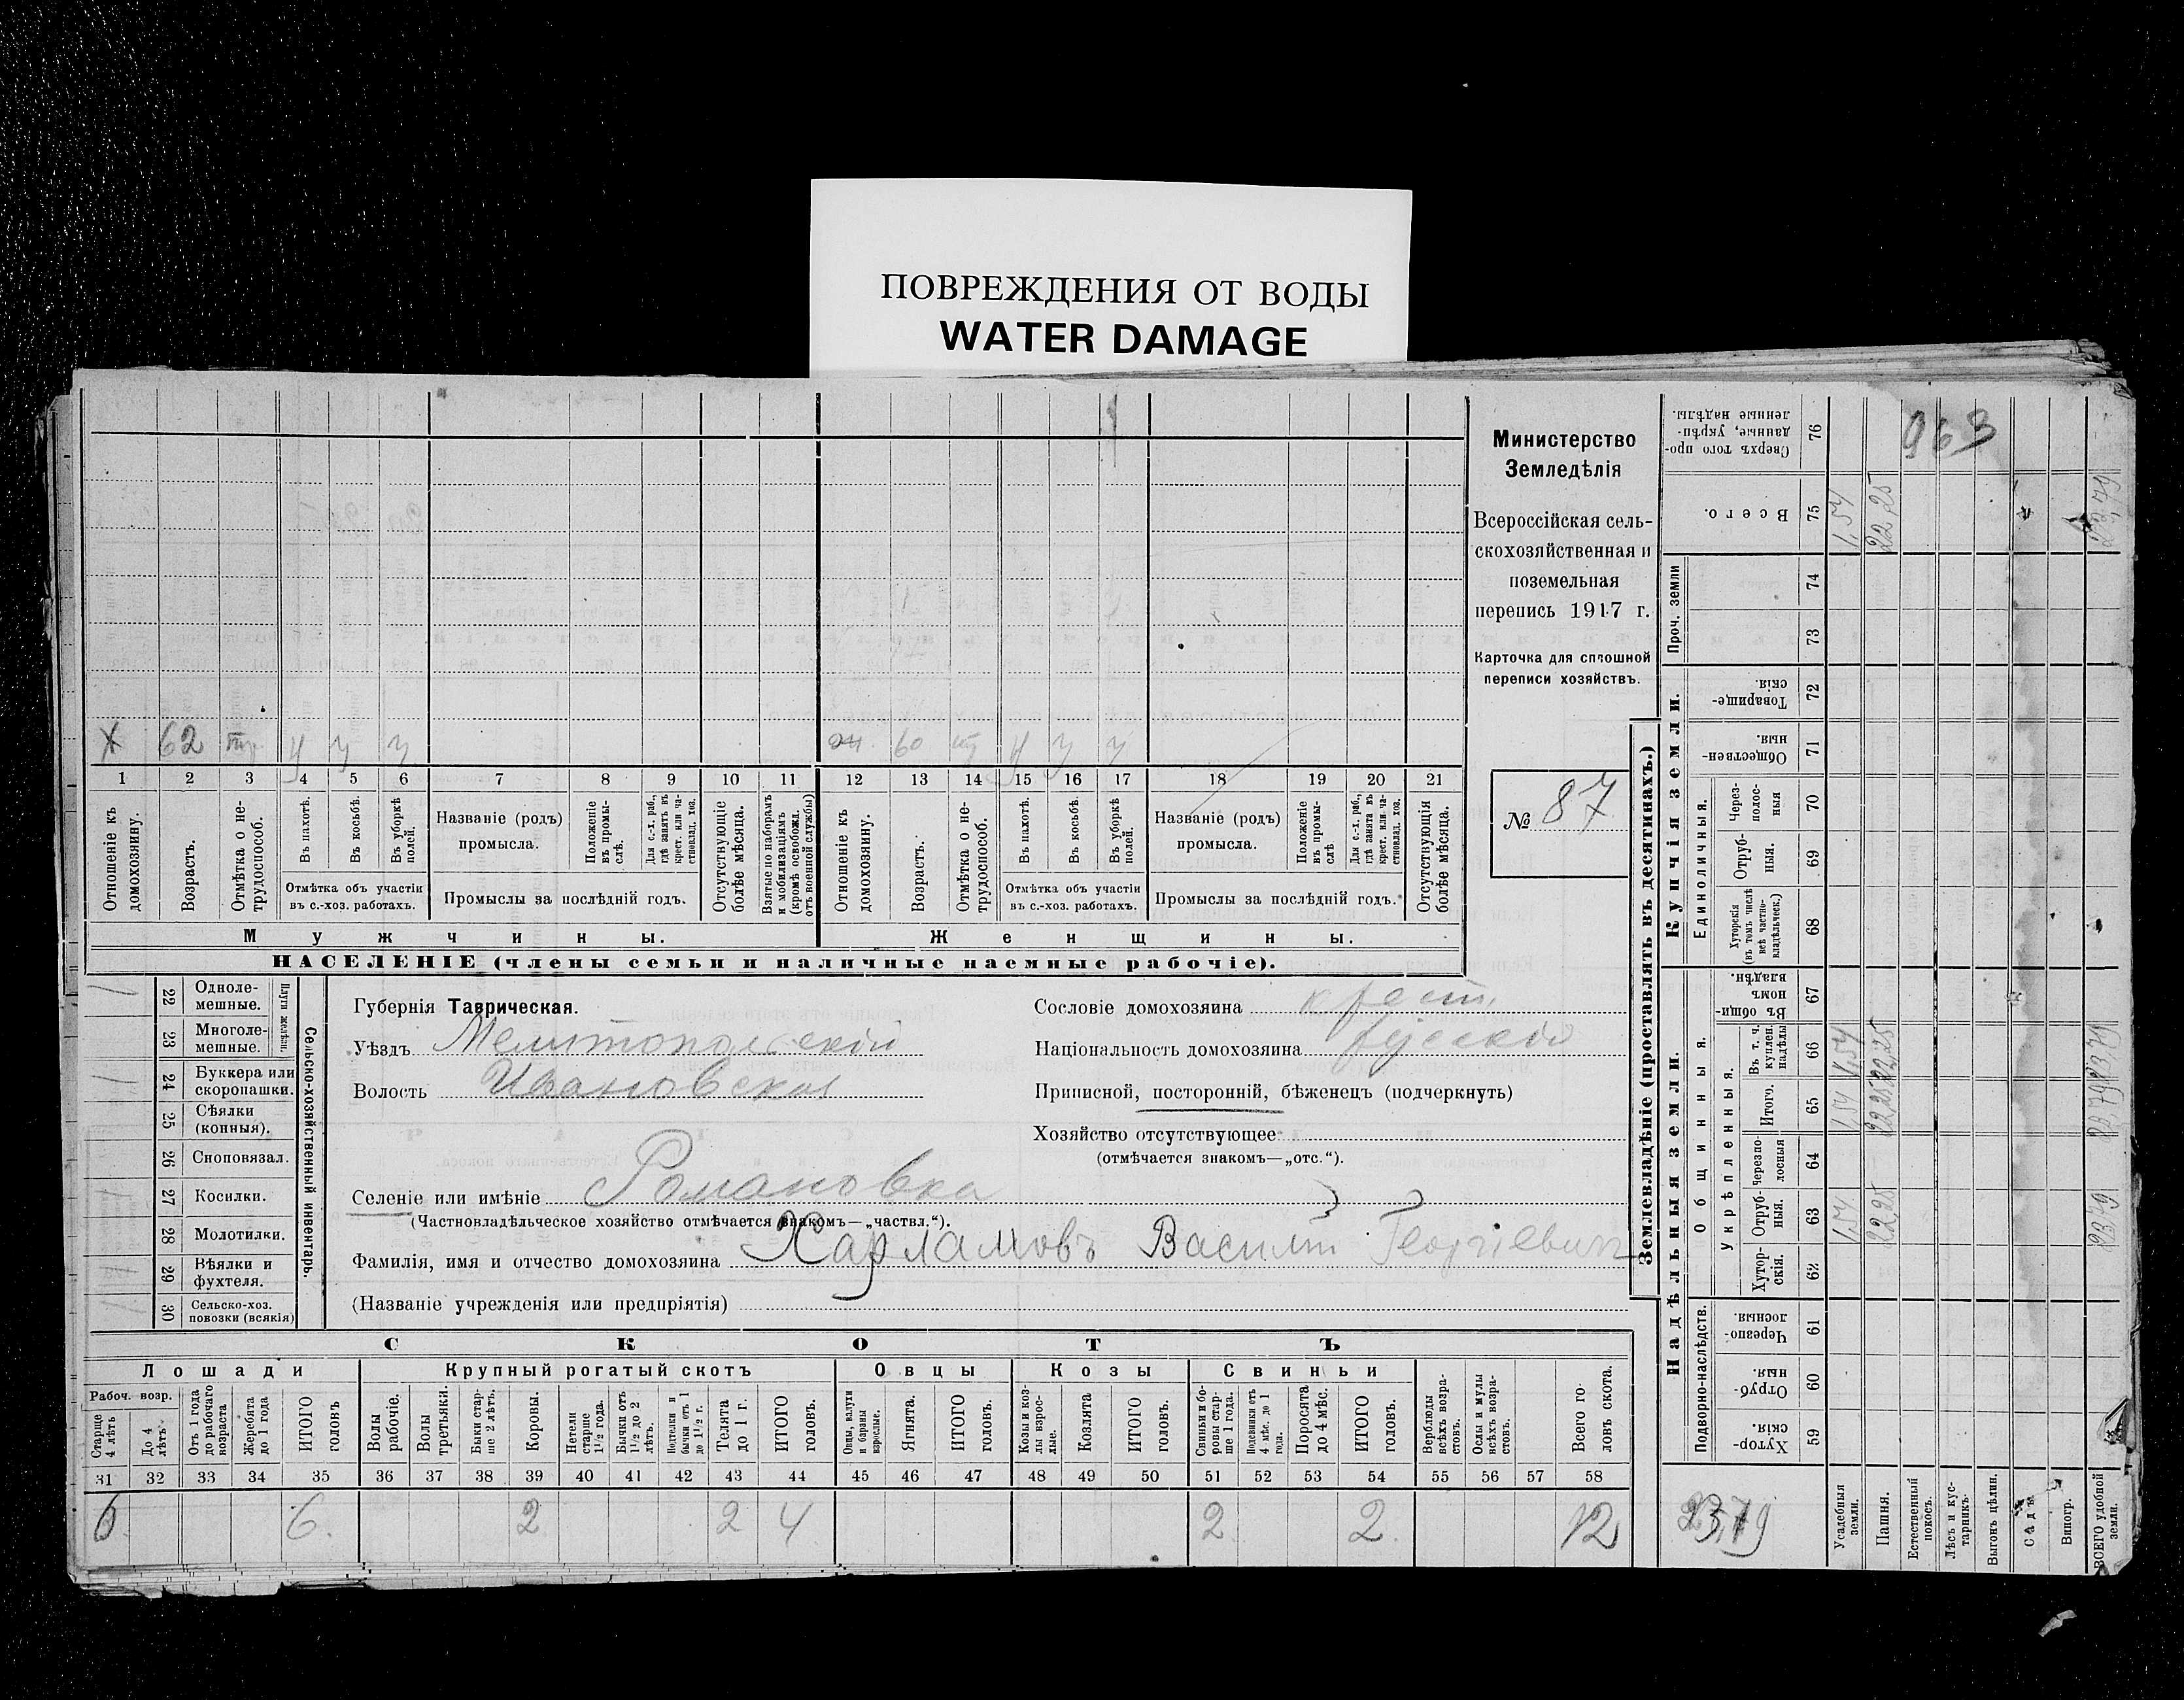 ПОВРЕЖДЕНИЯ ОТ ВОДЫ
WATER DAMAGE
Х 62 у у у 60 у у у
1 2 3 4 5 6 7 8 9 10 11 12 13 14 15 16 17 18 19 20 21
Отношеніе къ домохозяину.
Возрастъ.
Отмѣтка о нетрудоспособ.
Въ пахотѣ.
Въ косьбѣ.
Въ уборкѣ полей.
Отмѣтка объ участіи
въ с.-хоз. работахъ.
Названіе (родъ)
промысла.
Положеніе въ промыслѣ.
Для с.-х. раб., гдѣ занятъ въ крест. или частновлад. хоз.
Промыслы за послѣдній годъ.
Отсутствующіе болѣе мѣсяца.
Взятые по наборамъ и мобилизаціямъ (кромѣ освобожд. отъ военной службы)
Отношеніе къ домохозяину.
Возрастъ.
Отмѣтка о нетрудоспособ.
Въ пахотѣ.
Въ косьбѣ.
Въ уборкѣ полей.
Отмѣтка объ участіи
въ с.-хоз. работахъ.
Названіе (родъ)
промысла.
Положеніе въ промыслѣ
Для с.-х. раб., гдѣ занята въ крест. или частновлад. хоз.
Промыслы за послѣдній годъ.
Отсутствующія болѣе мѣсяца.
Мужчины.
Женщины.
НАСЕЛЕНІЕ (члены семьи и наличные наемные рабочіе).
Министерство
Земледѣлія
Всероссійская сель-
скохозяйственная и
поземельная
перепись 1917 г.
Карточка для сплошной
переписи хозяйствъ.
№ 87
22 Одноле-
мешные.
23 Многоле-
мешные.
Плуги желѣзн.
24 Буккера или
скоропашки.
25 Сѣялки
(конныя).
26 Сноповязал.
27 Косилки.
28 Молотилки.
29 Вѣялки и
фухтеля.
30 Сельско-хоз.
повозки (всякія)
Сельско-хозяйственный инвентарь.
Губернія Таврическая.
Уѣздъ Мелитопольскій
Волость Ивановская
Селеніе или имѣніе Романовка
(Частновладѣльческое хозяйство отмѣчается знакомъ—„частвл.“).
Фамилія, имя и отчество домохозяина Харламовъ Василій Георгіевичъ
(Названіе учрежденія или предпріятія)
Сословіе домохозяина крест.
Національность домохозяина русскій
Приписной, посторонній, бѣженецъ (подчеркнуть)
Хозяйство отсутствующее
(отмѣчается знакомъ—„отс.“).
СКОТЪ
Лошади
Крупный рогатый скотъ
Овцы
Козы
Свиньи
Рабоч. возр.
Старше 4 лѣтъ
До 4 лѣтъ
Отъ 1 года до рабочаго возраста
Жеребята до 1 года
ИТОГО головъ
Волы рабочіе.
Волы третьяки.
Быки старше 2 лѣтъ.
Коровы.
Нетели старше 1½ года.
Бычки отъ 1½ до 2 лѣтъ.
Подтелки и бычки отъ 1 до 1½ г.
Телята до 1 г.
ИТОГО головъ.
Овцы, валухи и бараны взрослые.
Ягнята.
ИТОГО головъ.
Козы и козлы взрослые.
Козлята
ИТОГО головъ.
Свиньи и боровы старше 1 года.
Подсвинки отъ 4 мѣс. до 1 года.
Поросята до 4 мѣс.
ИТОГО головъ.
Верблюды всѣхъ возрастовъ.
Ослы и мулы всѣхъ возрастовъ.
Всего головъ скота.
31 32 33 34 35 36 37 38 39 40 41 42 43 44 45 46 47 48 49 50 51 52 53 54 55 56 57 58
6. 6. 2 2 4 2 2 12
Землевладѣніе (проставлять въ десятинахъ.)
Купчія земли.
Надѣльныя земли.
Проч. земли
Единоличныя.
Общинныя.
Укрѣпленныя.
Подворно-наслѣдств.
Сверхъ того проданные, укрѣпленные надѣлы. 76 963
Всего. 75 1,54 22,25
74
73
Товарищескія. 72
Общественныя. 71
Черезполосныя 70
Отрубныя. 69
Хуторскія (въ томъ числѣ всѣ частновладѣльческ.) 68
Въ общинномъ владѣн. 67
Въ т. ч. куплен. надѣлы 66 1,54 22,25
Итого. 65 1,54 22,25
Черезполосныя 64
Отрубныя. 63 1,54 22,25
Хуторскія. 62
Черезполосныя. 61
Отрубныя. 60
Хуторскія. 59
23,79
Усадебныя земли.
Пашня.
Естественный покосъ.
Лѣсъ и кустарникъ.
Выгонъ цѣлин.
Садъ
Виногр.
ВСЕГО удобной земли.